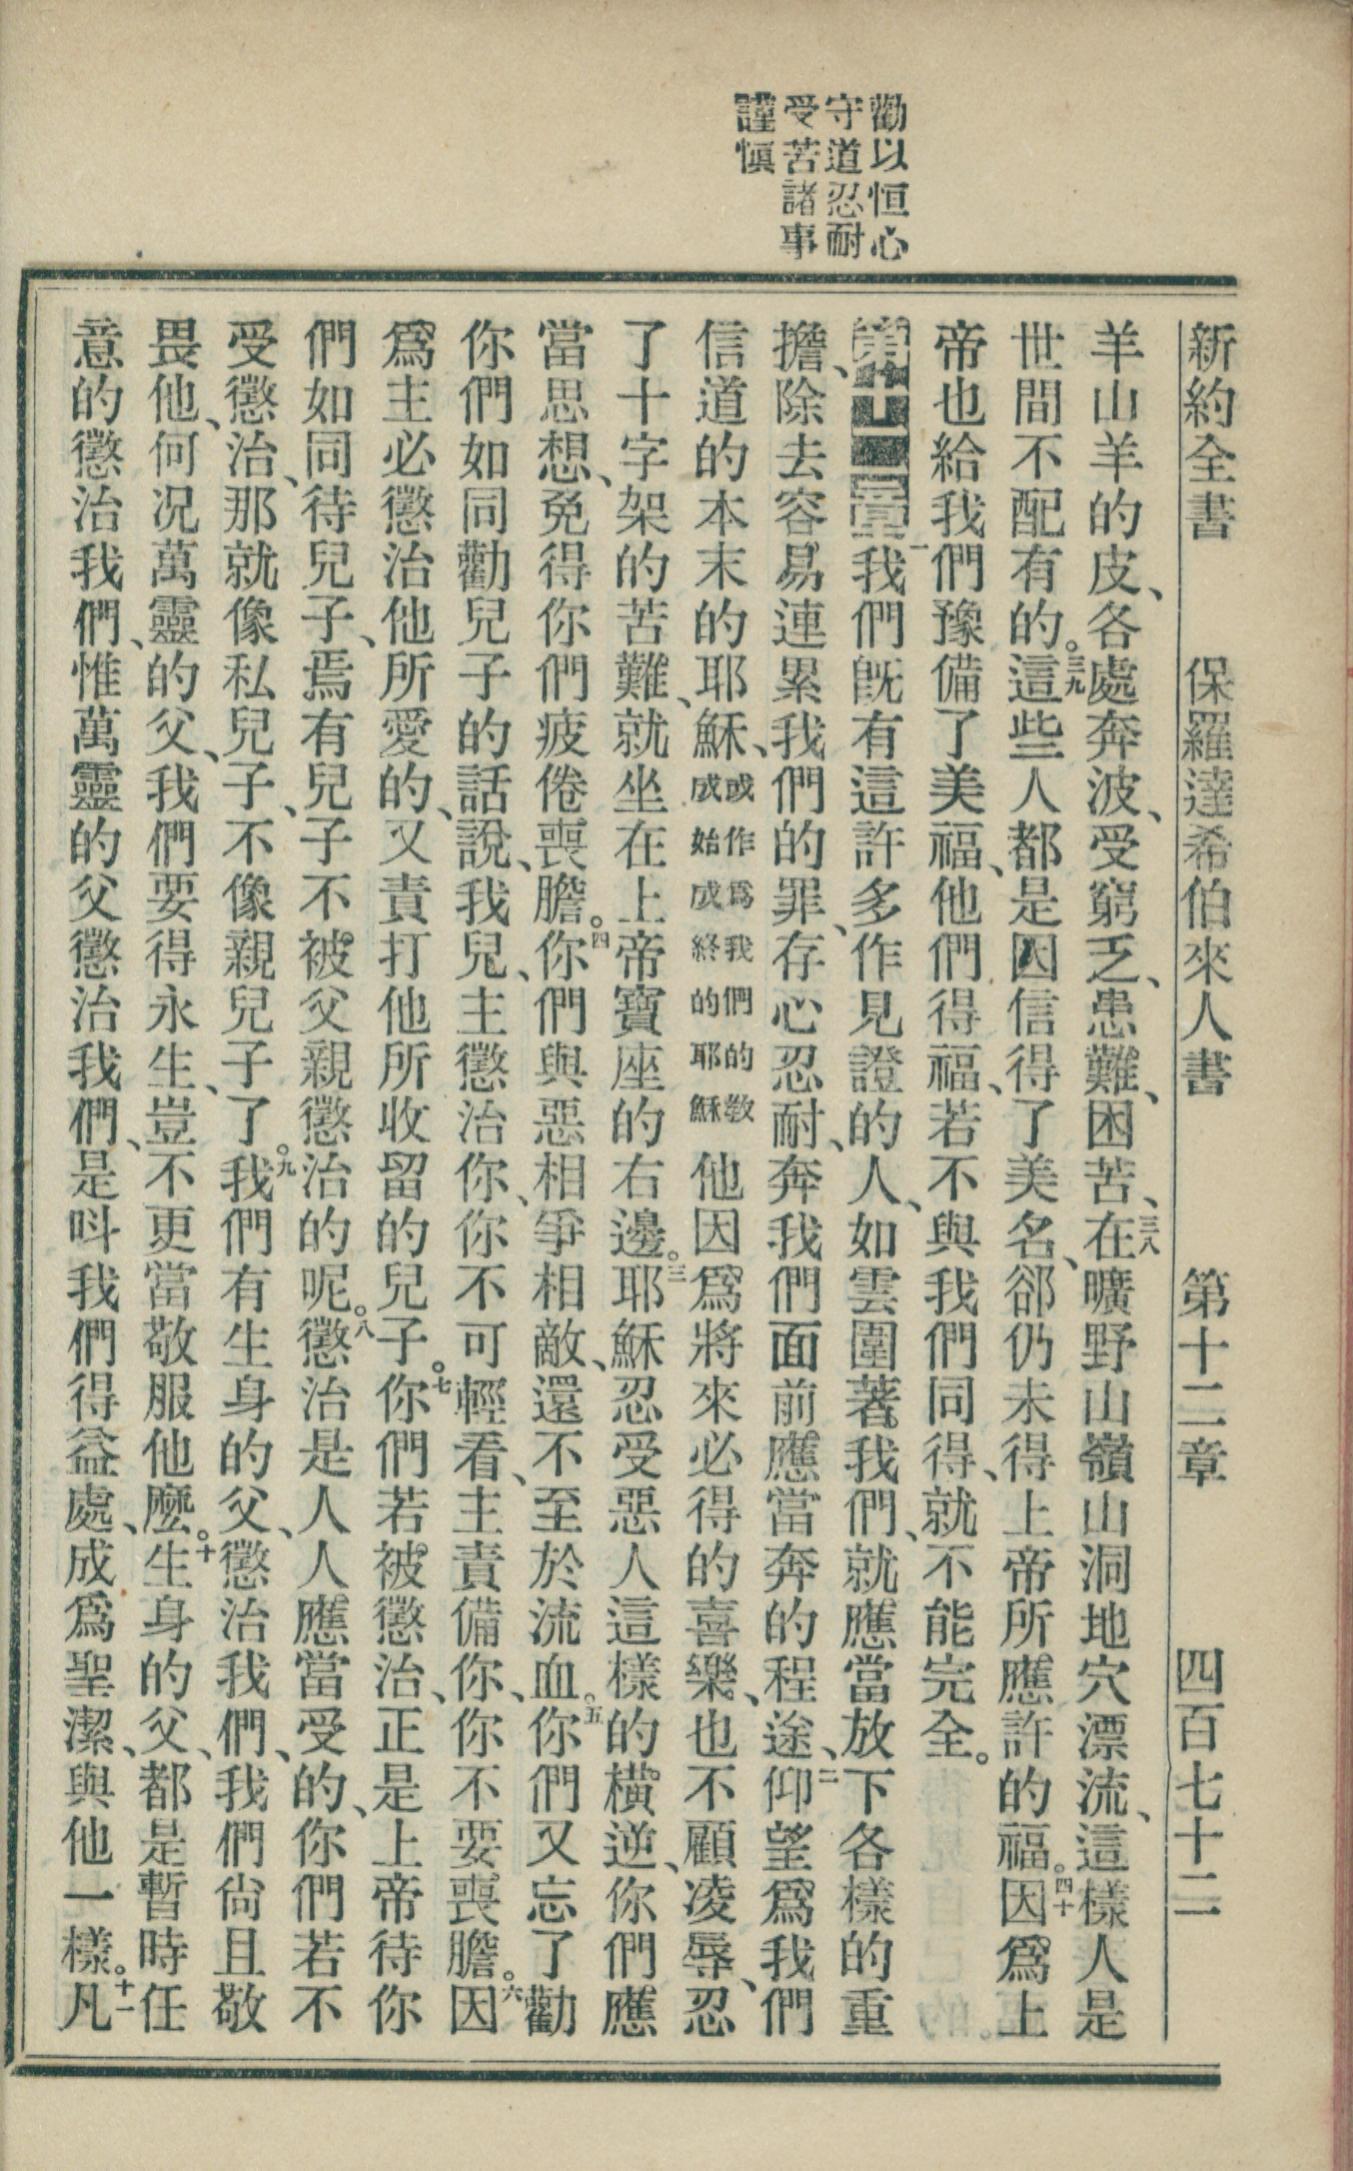 勸以恒心
守道忍耐
受苦諸事
謹愼
新約全書 保羅達希伯來人書 第十二章 四百七十二
羊山羊的皮、各處奔波、受窮乏、患難、困苦、三八在曠野山嶺山洞地穴漂流、這樣人是
世間不配有的。三九這些人都是因信得了美名、郤仍未得上帝所應許的福。四十因爲上
帝也給我們豫備了美福、他們得福、若不與我們同得、就不能完全。
第十二章一我們旣有這許多作見證的人、如雲圍著我們、就應當放下各樣的重
擔、除去容易連累我們的罪、存心忍耐、奔我們面前應當奔的程途、二仰望爲我們
信道的本末的耶穌、或作爲我們的敎成始成終的耶穌他因爲將來必得的喜樂、也不顧凌辱、忍
了十字架的苦難、就坐在上帝寶座的右邊。三耶穌忍受惡人這樣的橫逆、你們應
當思想、免得你們疲倦喪膽。四你們與惡相爭相敵、還不至於流血。五你們又忘了勸
你們如同勸兒子的話說、我兒、主懲治你、你不可輕看、主責備你、你不要喪膽。六因
爲主必懲治他所愛的、又責打他所收留的兒子。七你們若被懲治、正是上帝待你
們如同待兒子、焉有兒子不被父親懲治的呢。八懲治是人人應當受的、你們若不
受懲治、那就像私兒子、不像親兒子了。九我們有生身的父、懲治我們、我們尙且敬
畏他、何况萬靈的父、我們要得永生、豈不更當敬服他麽。十生身的父、都是暫時任
意的懲治我們、惟萬靈的父懲治我們、是呌我們得益處、成爲聖潔、與他一樣。十一凡